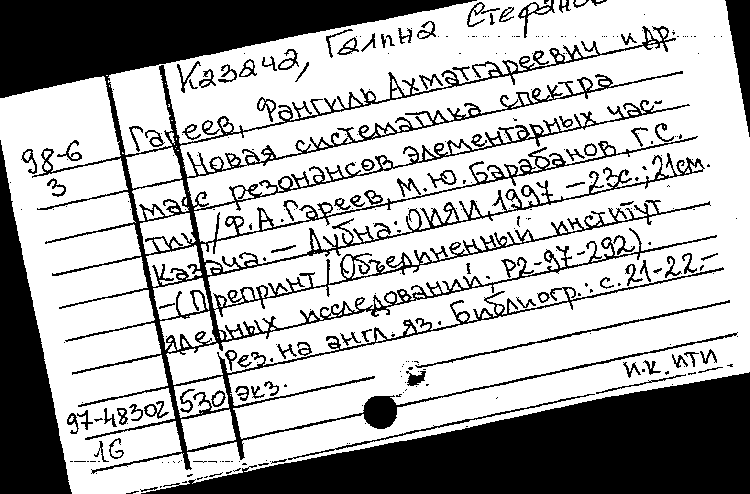 Казача, Галина Стефанов
98-6 Гареев, Фангиль Ахматгареевич и др.
3 Новая систематика спектра
масс резонансов элементарных час-
тиц / Ф.А. Гареев, М.Ю. Барабанов, Г.С.
Казача. — Дубна: ОИЯИ, 1997. — 23с.; 21см.
-(Препринт / Объединенный институт
ядерных исследований; Р2-97-292).
Рез. на англ. яз. Библиогр.: с. 21-22.-
97-48302 530 экз.
16
и.к. ИТИ